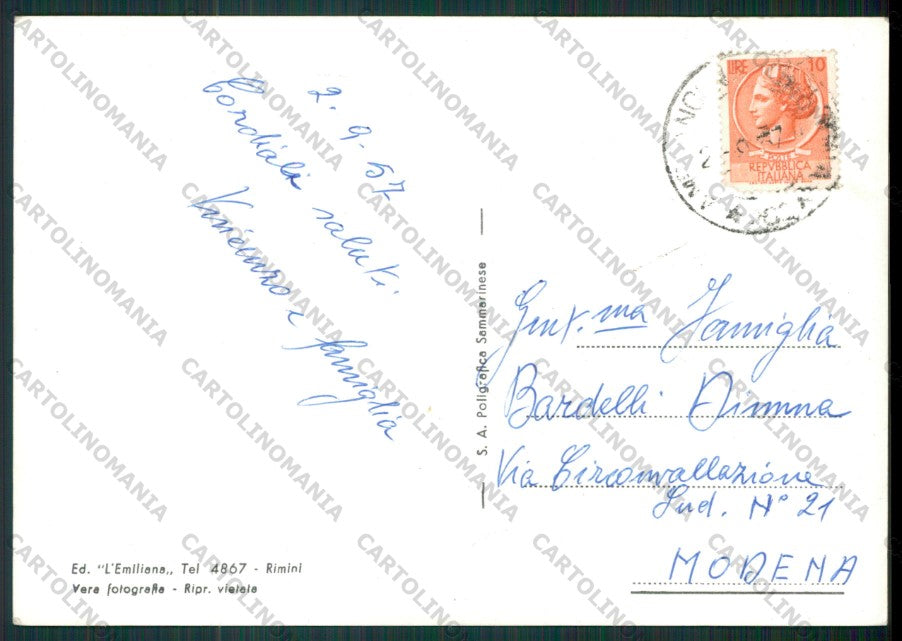 2. 9. 57
Cordiali saluti.
Vincenzo e famiglia
Ed. "L'Emiliana„ Tel 4867 - Rimini
Vera fotografia - Ripr. vietata
S. A. Poligrafica Sammarinese
LIRE 10
POSTE
REPVBBLICA
ITALIANA
Gent.ma Famiglia
Bardelli
Via Circonvallazione
Sud. N° 21
MODENA
CARTOLINOMANIA